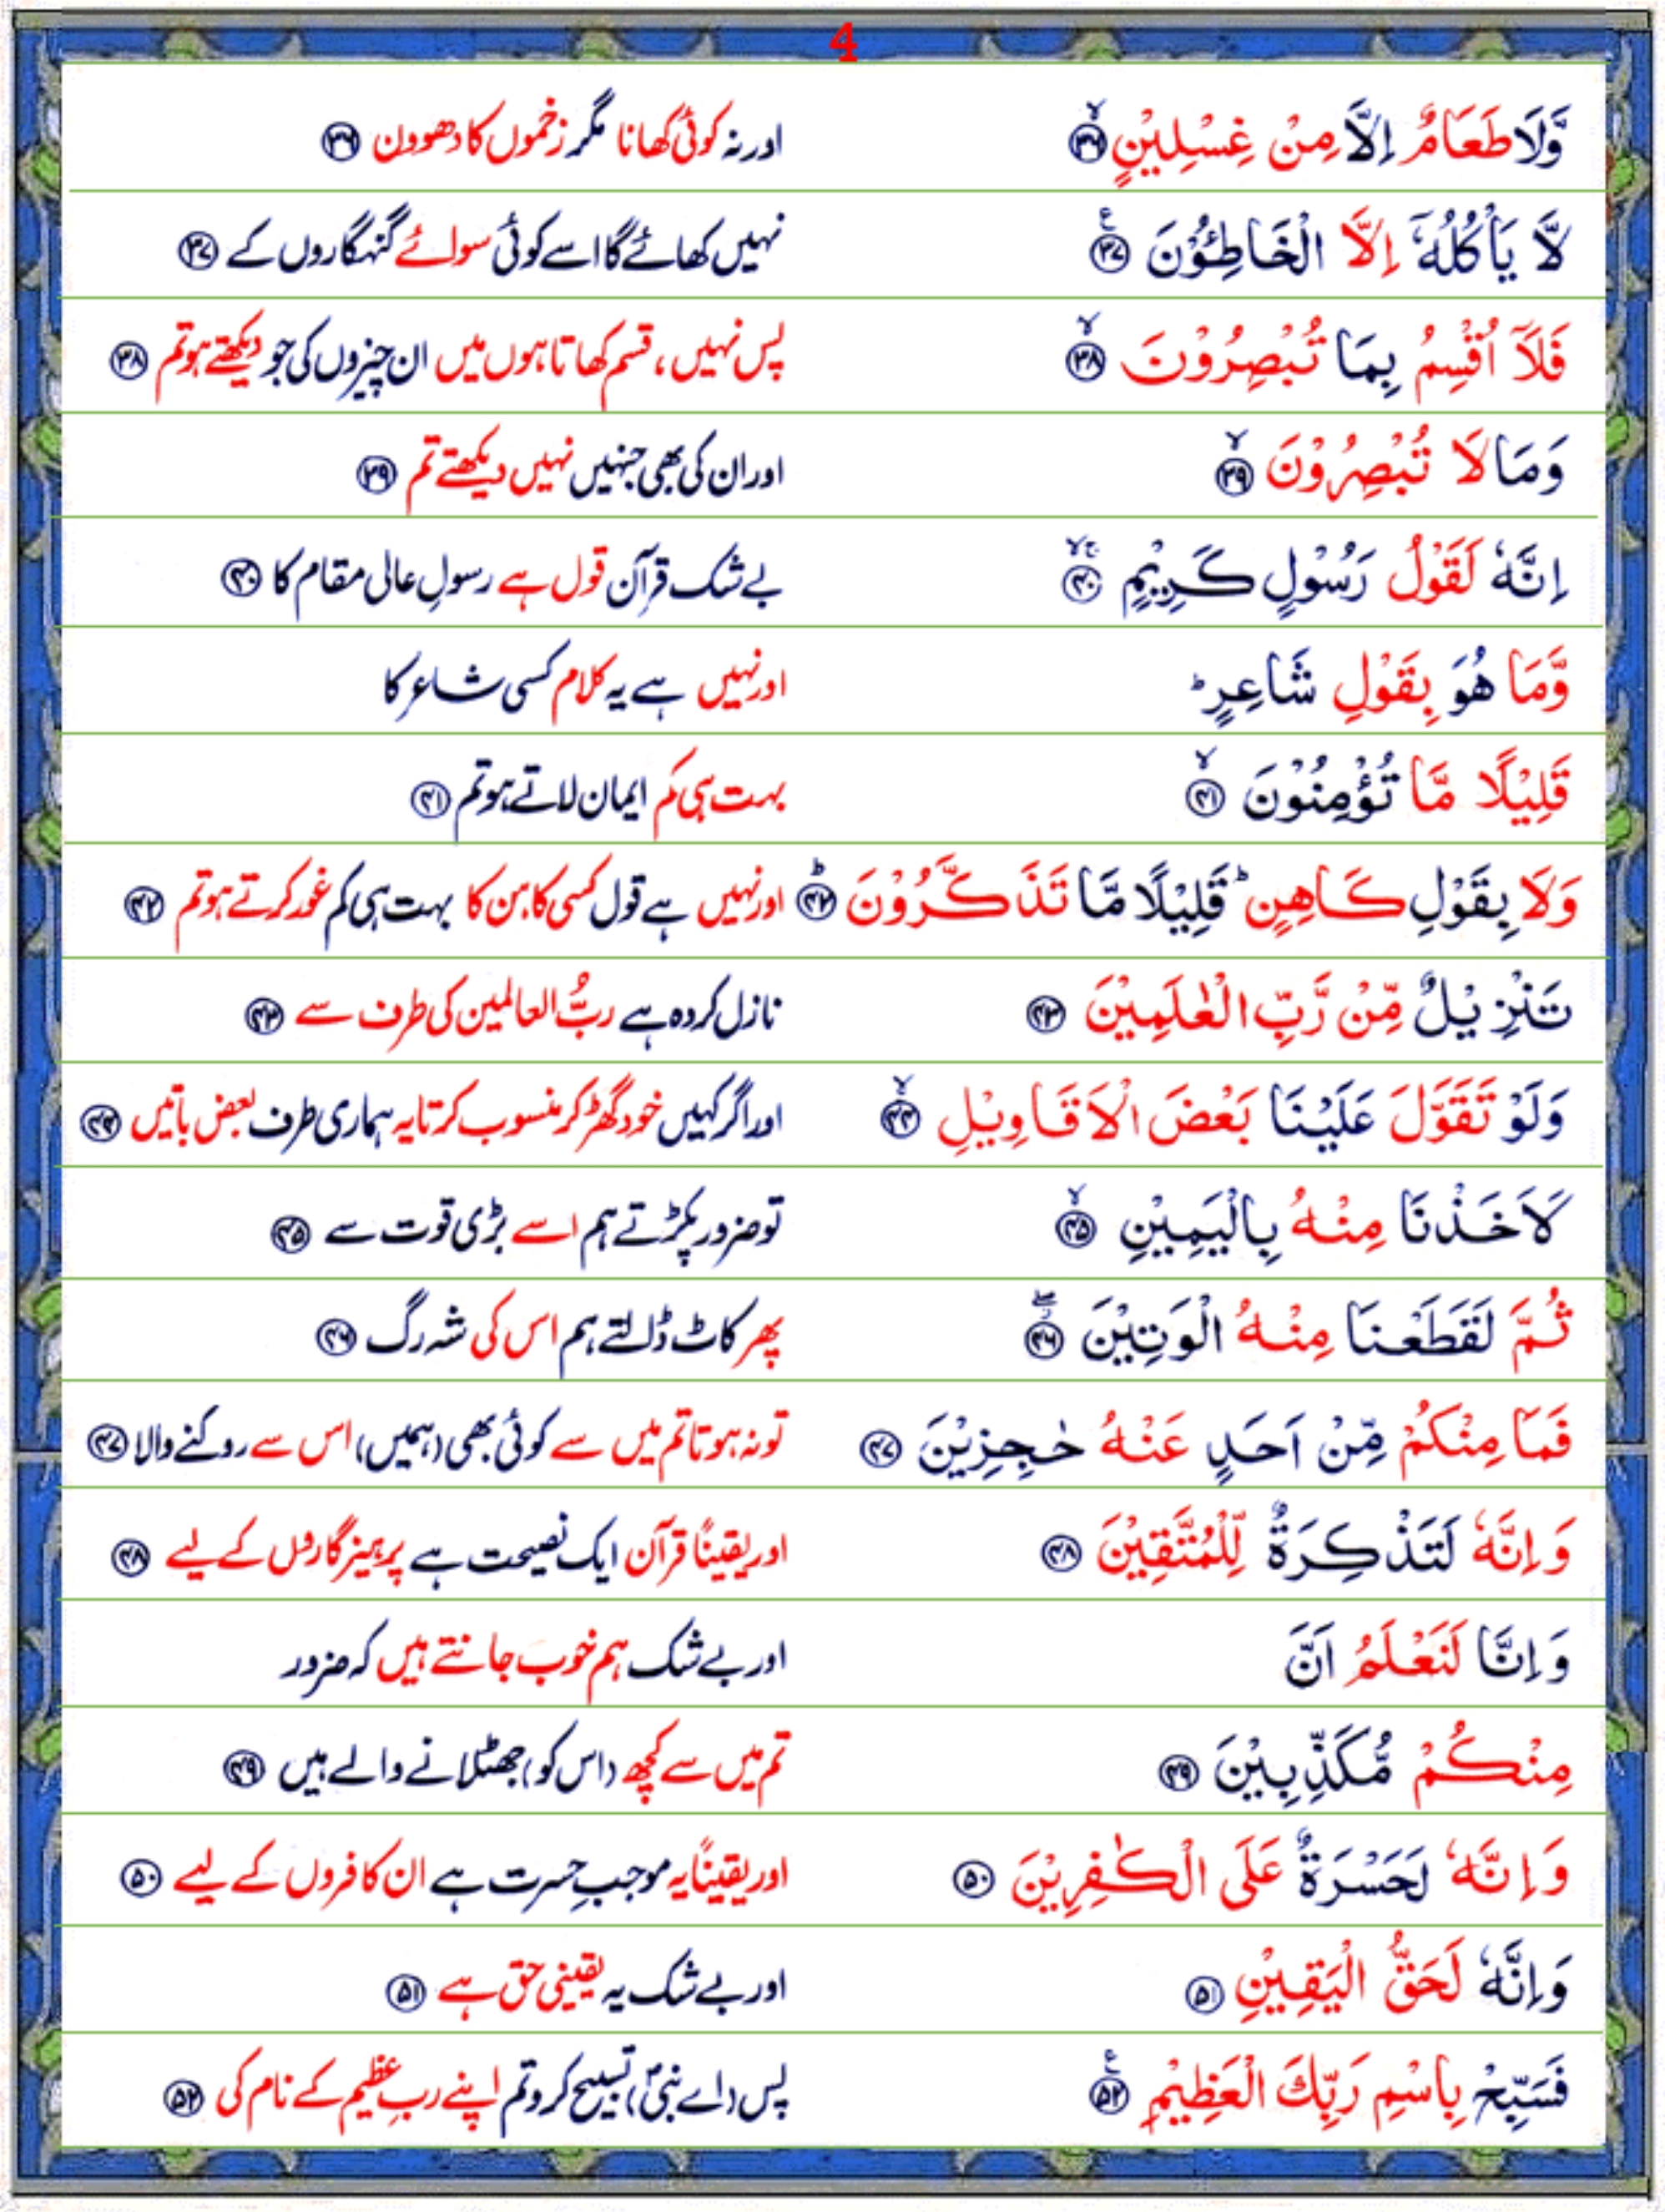 4
وَّلَا طَعَامٌ اِلَّا مِنْ غِسْلِيْنٍ ۙ۳۶ اور نہ کوئی کھانا مگر زخموں کا دھوون ۳۶
لَّا يَاْكُلُهٗٓ اِلَّا الْخَاطِـُٔوْنَ ۧ۳۷ نہیں کھائے گا اسے کوئی سوائے گنہگاروں کے ۳۷
فَلَآ اُقْسِمُ بِمَا تُبْصِرُوْنَ ۙ۳۸ پس نہیں، قسم کھاتا ہوں میں ان چیزوں کی جو دیکھتے ہو تم ۳۸
وَمَا لَا تُبْصِرُوْنَ ۙ۳۹ اور ان کی بھی جنہیں نہیں دیکھتے تم ۳۹
اِنَّهٗ لَقَوْلُ رَسُوْلٍ كَرِيْمٍ ۚۙ۴۰ بے شک قرآن قول ہے رسولِ عالی مقام کا ۴۰
وَّمَا هُوَ بِقَوْلِ شَاعِرٍ ؕ اور نہیں ہے یہ کلام کسی شاعر کا
قَلِيْلًا مَّا تُؤْمِنُوْنَ ۙ۴۱ بہت ہی کم ایمان لاتے ہو تم ۴۱
وَلَا بِقَوْلِ كَاهِنٍ ؕ قَلِيْلًا مَّا تَذَكَّرُوْنَ ؕ۴۲ اور نہیں ہے قول کسی کاہن کا بہت ہی کم غور کرتے ہو تم ۴۲
تَنْزِيْلٌ مِّنْ رَّبِّ الْعٰلَمِيْنَ ۴۳ نازل کردہ ہے ربُّ العالمین کی طرف سے ۴۳
وَلَوْ تَقَوَّلَ عَلَيْنَا بَعْضَ الْاَقَاوِيْلِ ۙ۴۴ اور اگر کہیں خود گھڑ کر منسوب کرتا یہ ہماری طرف بعض باتیں ۴۴
لَاَخَذْنَا مِنْهُ بِالْيَمِيْنِ ۙ۴۵ تو ضرور پکڑتے ہم اسے بڑی قوت سے ۴۵
ثُمَّ لَقَطَعْنَا مِنْهُ الْوَتِيْنَ ۖ۴۶ پھر کاٹ ڈالتے ہم اس کی شہ رگ ۴۶
فَمَا مِنْكُمْ مِّنْ اَحَدٍ عَنْهُ حٰجِزِيْنَ ۴۷ تو نہ ہوتا تم میں سے کوئی بھی (ہمیں) اس سے روکنے والا ۴۷
وَاِنَّهٗ لَتَذْكِرَةٌ لِّلْمُتَّقِيْنَ ۴۸ اور یقیناً قرآن ایک نصیحت ہے پرہیزگاروں کے لیے ۴۸
وَاِنَّا لَنَعْلَمُ اَنَّ اور بے شک ہم خوب جانتے ہیں کہ ضرور
مِنْكُمْ مُّكَذِّبِيْنَ ۴۹ تم میں سے کچھ (اس کو) جھٹلانے والے ہیں ۴۹
وَاِنَّهٗ لَحَسْرَةٌ عَلَى الْكٰفِرِيْنَ ۵۰ اور یقیناً یہ موجبِ حسرت ہے ان کافروں کے لیے ۵۰
وَاِنَّهٗ لَحَقُّ الْيَقِيْنِ ۵۱ اور بے شک یہ یقینی حق ہے ۵۱
فَسَبِّحْ بِاسْمِ رَبِّكَ الْعَظِيْمِ ۧ۵۲ پس (اے نبیؐ) تسبیح کرو تم اپنے ربِ عظیم کے نام کی ۵۲